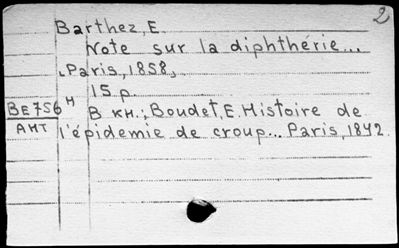 2
Barthez, E.
Note sur la diphthérie...
Paris, 1858,
15 p.
BE756 H
АНТ
В кн.: Boudet, E. Histoire de
l'épidemie de croup... Paris, 1842.